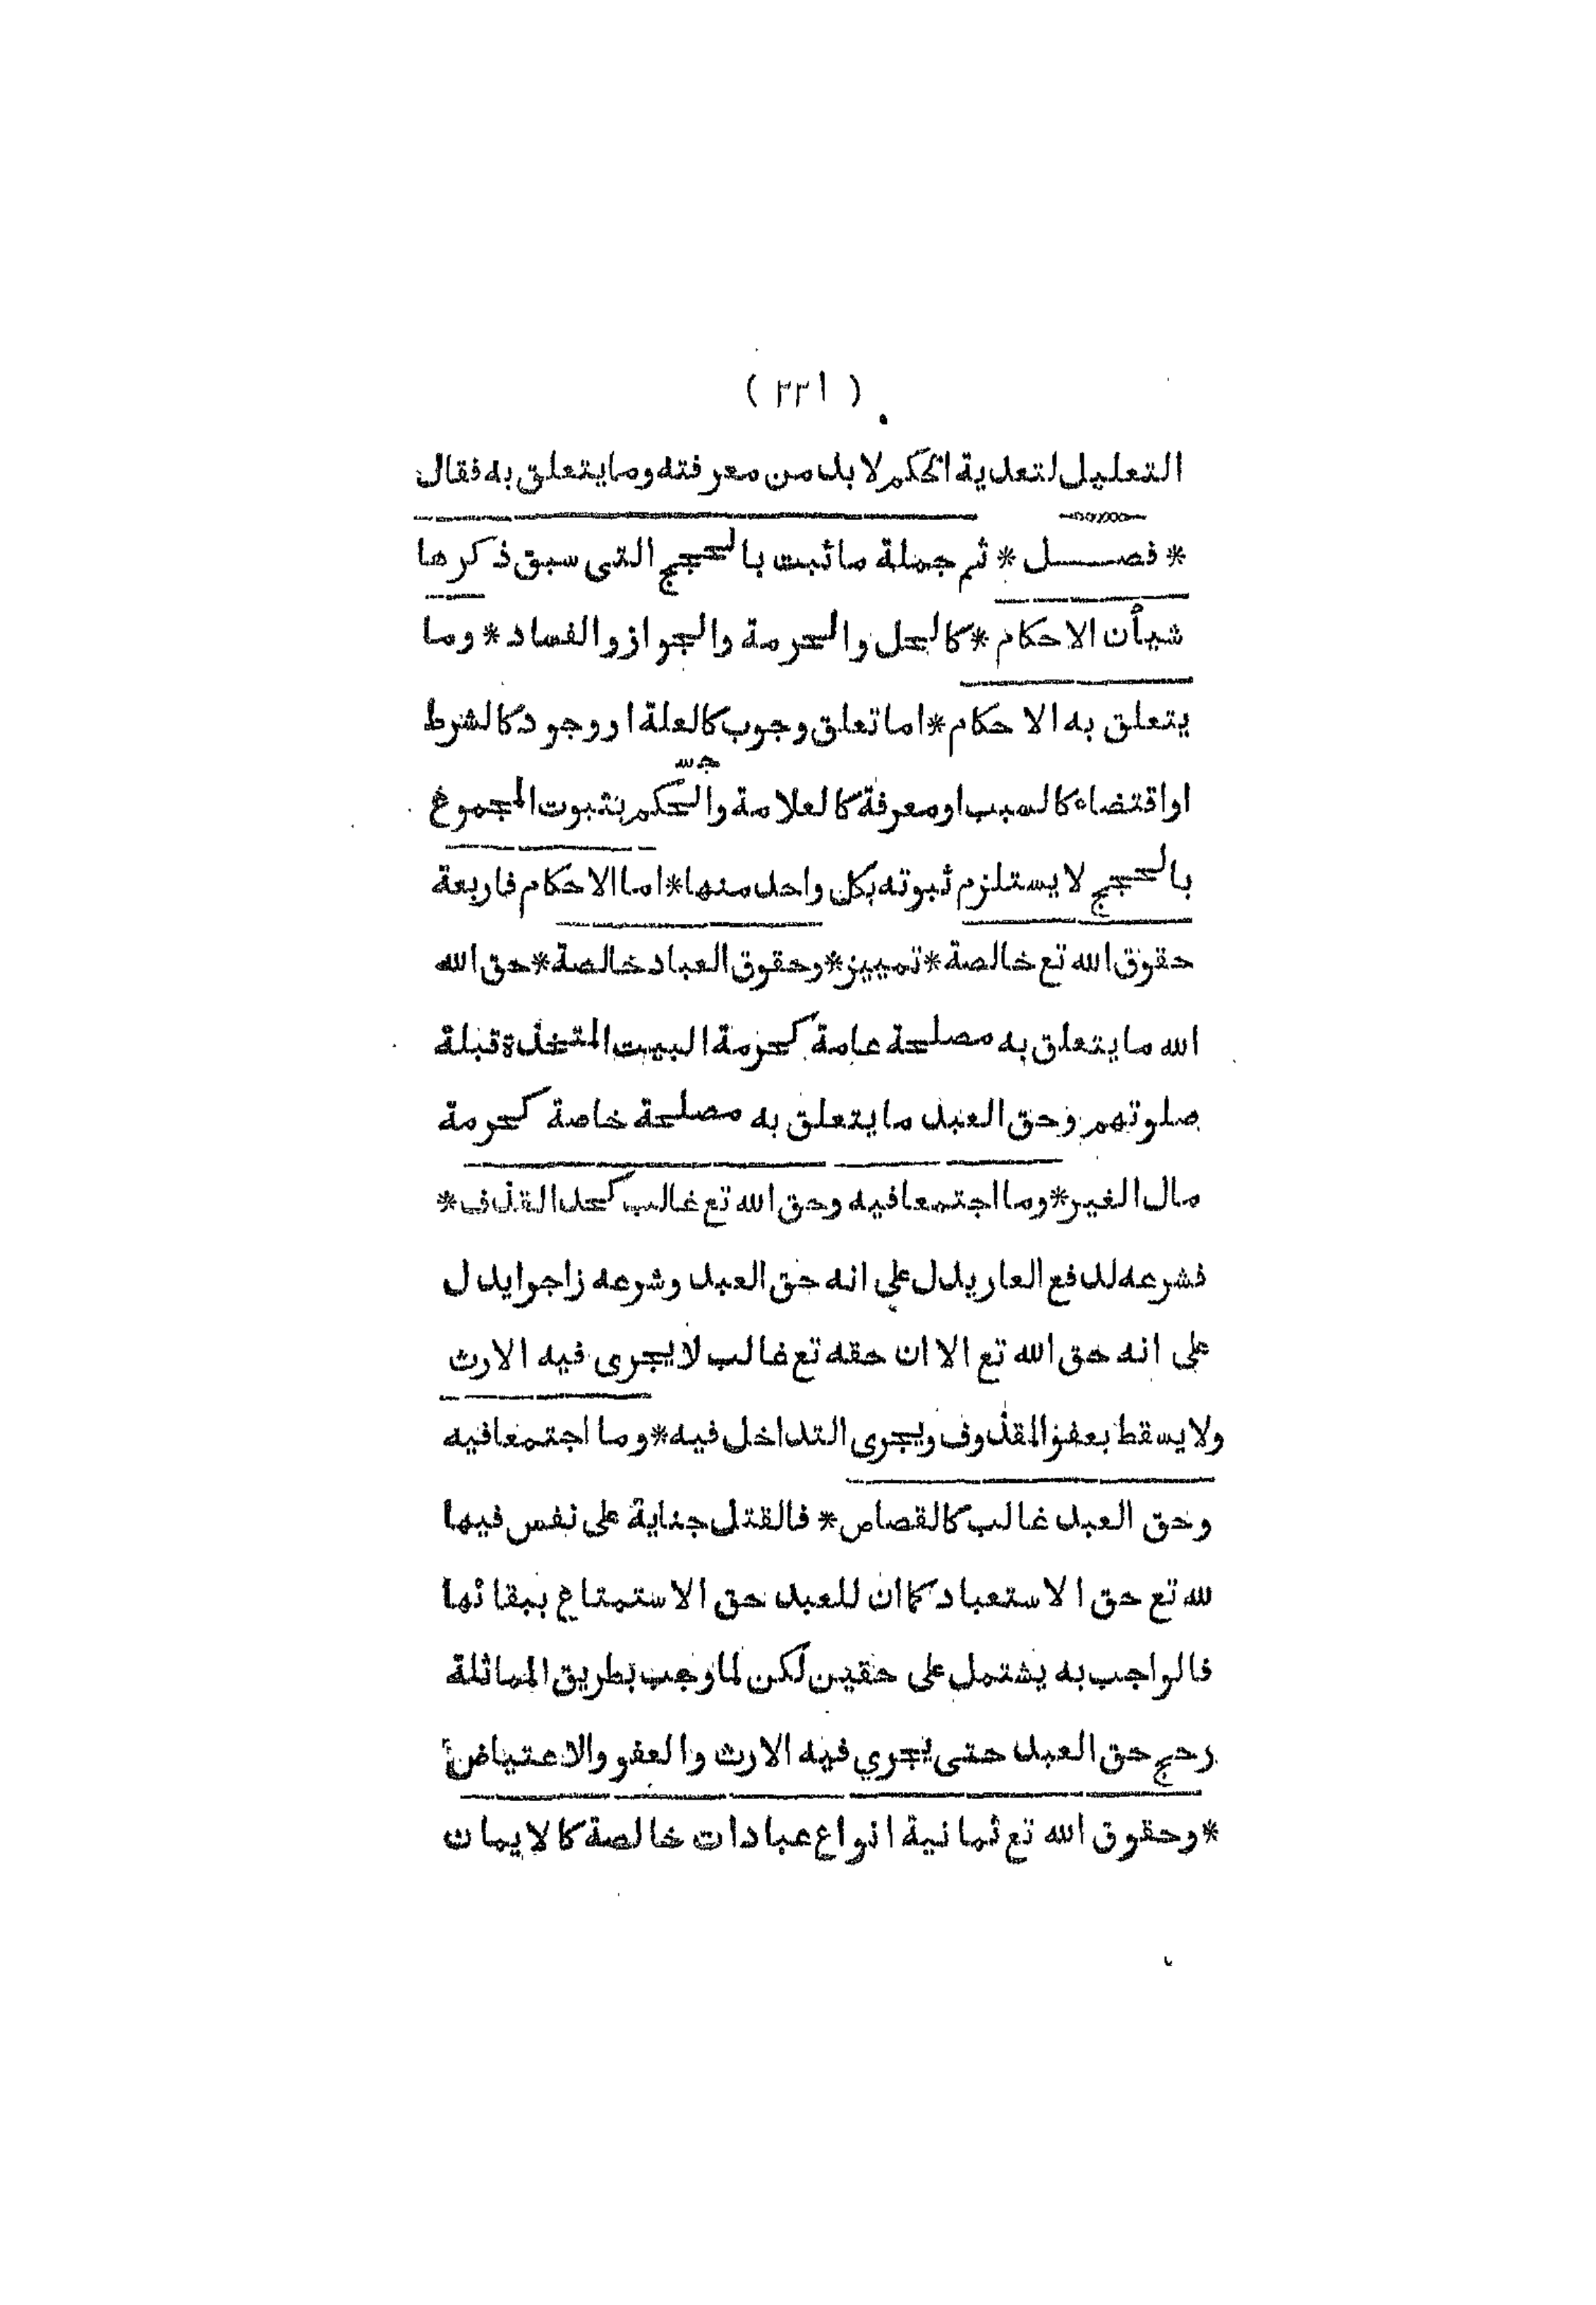 ( ٢٢١ )
التعليل لتعدية الحكم لا بد من معرفته وما يتعلق به فقال
* فصــــل * ثم جملة ما ثبت بالحجج التى سبق ذكرها
شيأن الاحكام * كالحل والحرمة والجواز والفساد * وما
يتعلق به الاحكام * اما تعلق وجوب كالعلة او وجود كالشرط
او اقتضاء كالسبب او معرفة كالعلامة والحكم بثبوت المجموع
بالحجج لا يستلزم ثبوته بكل واحد منها * اما الاحكام فاربعة
حقوق الله تع خالصة * تمييز * وحقوق العباد خالصة * حق الله
الله ما يتعلق به مصلحة عامة كحرمة البيت المتخذة قبلة
صلوتهم وحق العبد ما يتعلق به مصلحة خاصة كحرمة
مال الغير * وما اجتمعا فيه وحق الله تع غالب كحد القذف *
فشرعه لدفع العار يدل على انه حق العبد وشرعه زاجرا يدل
على انه حق الله تع الا ان حقه تع غالب لا يجرى فيه الارث
ولا يسقط بعفو المقذوف ويجرى التداخل فيه * وما اجتمعا فيه
وحق العبد غالب كالقصاص * فالقتل جناية على نفس فيها
لله تع حق الاستعباد كما ان للعبد حق الاستمتاع ببقائها
فالواجب به يشتمل على حقين لكن لما وجب بطريق المماثلة
رجح حق العبد حتى يجري فيه الارث والعفو والاعتياض
* وحقوق الله تع ثمانية انواع عبادات خالصة كالايمان